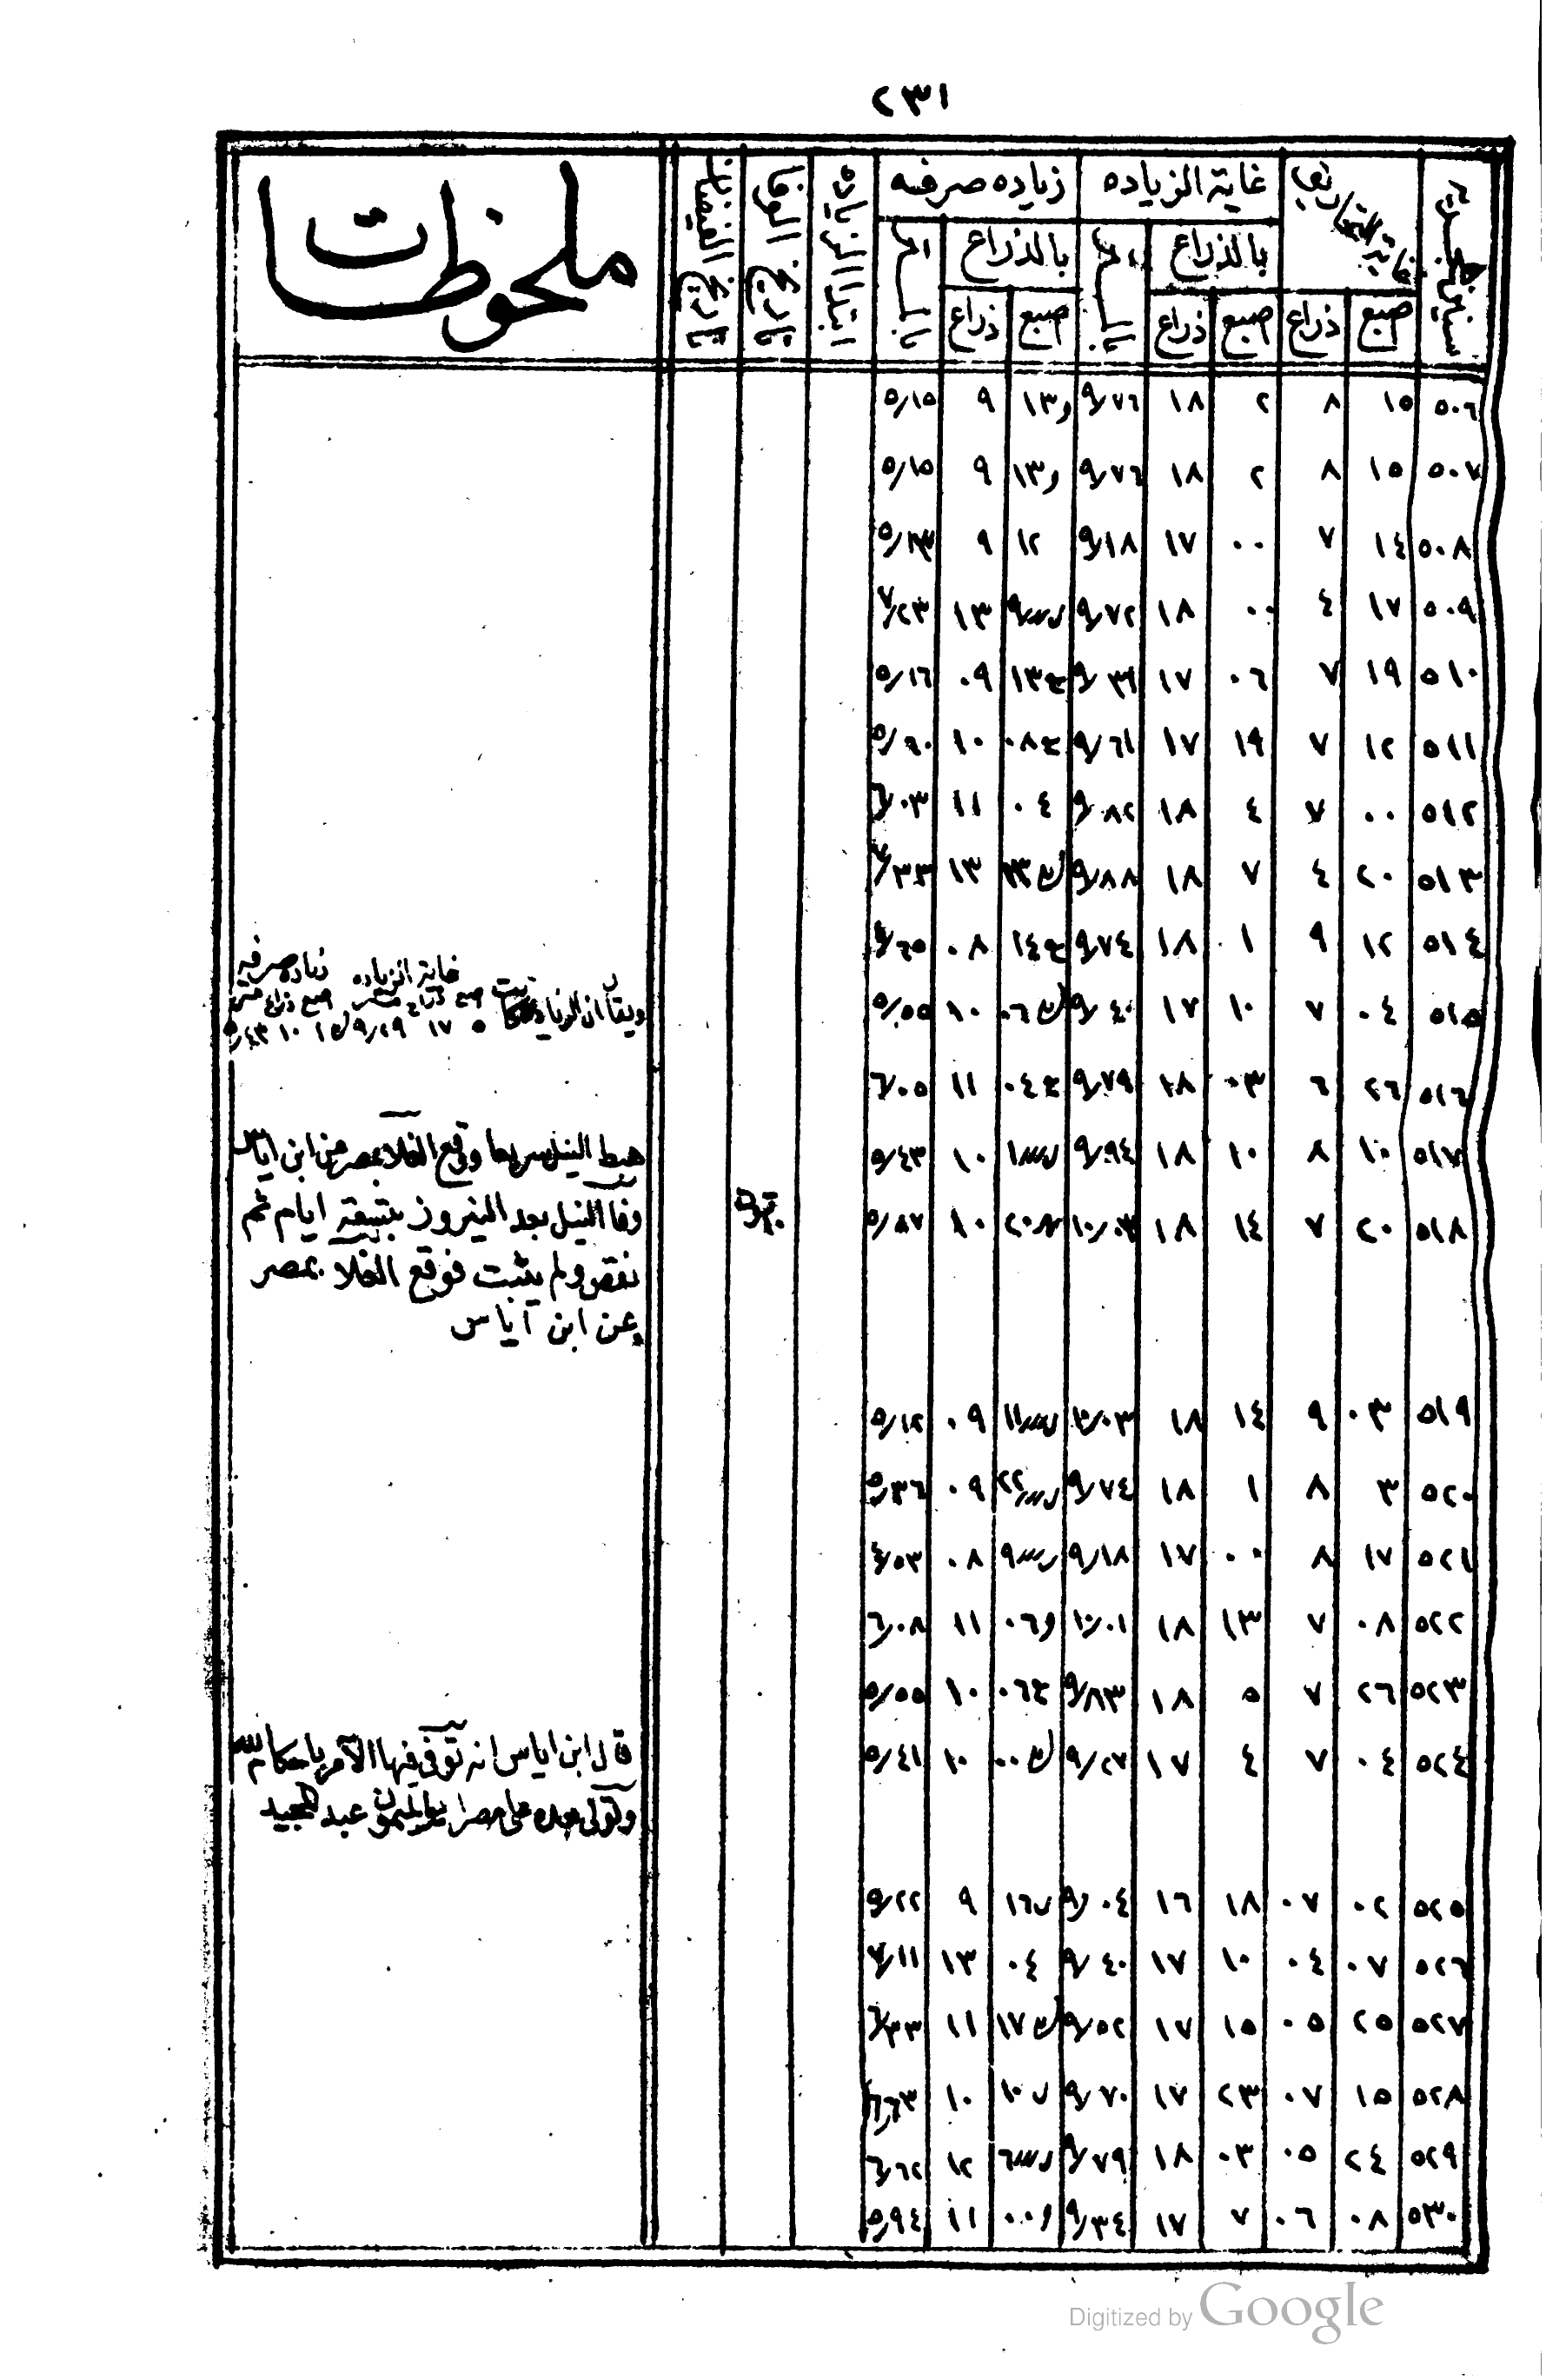 ٢٣١
سنين هجرية | غاية التحاريق | غاية الزياده | زياده صرفه | ابتدا الزياده | تاريخ الوفا | تاريخ الفيضان | ملحوظات
بالذراع | امتار | بالذراع | امتار
صبع | ذراع | صبع | ذراع | صبع | ذراع
٥٠٦ | ١٥ | ٨ | ٢ | ١٨ | ٩/٧٦ | ١٣و | ٩ | ٥/١٥
٥٠٧ | ١٥ | ٨ | ٢ | ١٨ | ٩/٧٦ | ١٣و | ٩ | ٥/١٥
٥٠٨ | ١٤ | ٧ | ٠٠ | ١٧ | ٩/١٨ | ١٢ | ٩ | ٥/١٣
٥٠٩ | ١٧ | ٤ | ٠٠ | ١٨ | ٩/٧٢ | ٩ | ١٣ | ٧/٢٣
٥١٠ | ١٩ | ٧ | ٠٦ | ١٧ | ٩/٣١ | ١٣ | ٠٩ | ٥/١٦
٥١١ | ١٢ | ٧ | ١٩ | ١٧ | ٩/٦١ | ٠٨ | ١٠ | ٥/٦٠
٥١٢ | ٠٠ | ٧ | ٤ | ١٨ | ٩/٨٢ | ٠٤ | ١١ | ٦/٠٣
٥١٣ | ٢٠ | ٤ | ٧ | ١٨ | ٩/٨٨ | ٢٣ | ١٣ | ٧/٣٣
٥١٤ | ١٢ | ٩ | ١ | ١٨ | ٩/٧٤ | ١٤ | ٠٨ | ٤/٦٥
٥١٥ | ٠٤ | ٧ | ١٠ | ١٧ | ٩/٤٠ | ٠٦ | ١٠ | ٥/٥٥ | ويقال ان الزياده كانت
غاية الزياده زياده صرفه
صبع ذراع متر صبع ذراع متر
٥ ١٧ ٩/٢٩ ١٥ ١٠ ٥/٤٣
٥١٦ | ٢٦ | ٦ | ٠٣ | ١٨ | ٩/٧٩ | ٠٤ | ١١ | ٦/٠٥
٥١٧ | ١٠ | ٨ | ١٠ | ١٨ | ٩/٩٤ | ١ | ١٠ | ٥/٤٣ | هبط النيل سريعا ووقع الغلا بمصر عن ابن اياس
٥١٨ | ٢٠ | ٧ | ١٤ | ١٨ | ١٠/٠٣ | ٢٠ | ١٠ | ٥/٨٧ | وفا النيل بعد النيروز بتسعة ايام ثم
نقص ولم يثبت فوقع الغلا بمصر
عن ابن اياس
٥١٩ | ٠٣ | ٩ | ١٤ | ١٨ | ١٠/٠٣ | ١١ | ٠٩ | ٥/١٢
٥٢٠ | ٣ | ٨ | ١ | ١٨ | ٩/٧٤ | ٢٢ | ٠٩ | ٥/٣٦
٥٢١ | ١٧ | ٨ | ٠٠ | ١٧ | ٩/١٨ | ٩ | ٠٨ | ٤/٥٣
٥٢٢ | ٠٨ | ٧ | ١٣ | ١٨ | ١٠/٠١ | ٠٦و | ١١ | ٦/٠٨
٥٢٣ | ٢٦ | ٧ | ٥ | ١٨ | ٩/٨٣ | ٠٦ | ١٠ | ٥/٥٥
٥٢٤ | ٠٤ | ٧ | ٤ | ١٧ | ٩/٢٧ | ٠٠ | ١٠ | ٥/٤١ | قال ابن اياس انه توفى فيها الآمر باحكام الله
وتولى بعده على مصر ابو الميمون عبد المجيد
٥٢٥ | ٠٢ | ٠٧ | ١٨ | ١٦ | ٩/٠٤ | ١٦ | ٩ | ٥/٢٢
٥٢٦ | ٠٧ | ٠٤ | ١٠ | ١٧ | ٩/٤٠ | ٠٤ | ١٣ | ٧/١١
٥٢٧ | ٢٥ | ٠٥ | ١٥ | ١٧ | ٩/٥٢ | ١٧ | ١١ | ٦/٣٣
٥٢٨ | ١٥ | ٠٧ | ٢٣ | ١٧ | ٩/٧٠ | ١٠ | ١٠ | ٦/٦٣
٥٢٩ | ٢٤ | ٠٥ | ٠٣ | ١٨ | ٩/٧٩ | ٦ | ١٢ | ٦/٦٢
٥٣٠ | ٠٨ | ٠٦ | ٧ | ١٧ | ٩/٣٤ | ٠٠و | ١١ | ٥/٩٤
Digitized by Google